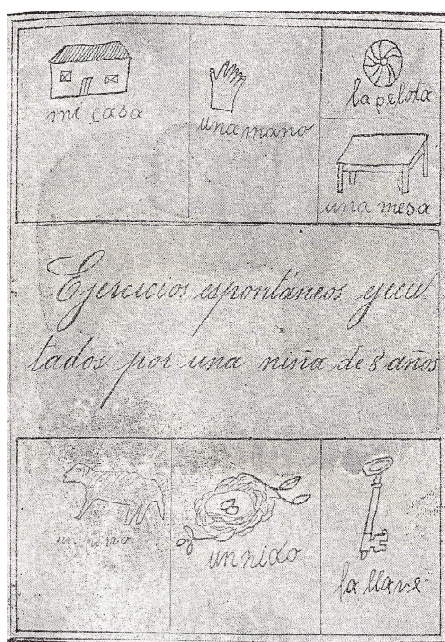 mi casa
una mano
la pelota
una mesa
Ejercicios espontáneos ejecu-
tados por una niña de 8 años
un
un nido
la llave